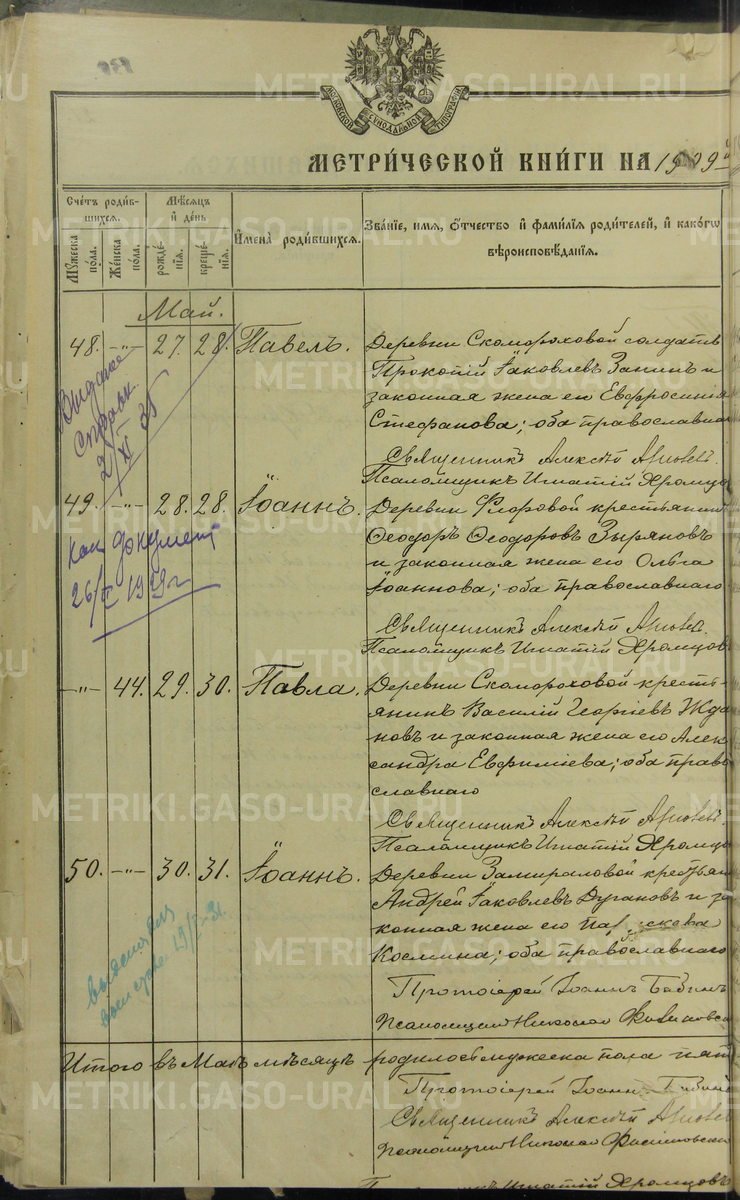 МОСКОВСКОЙ СУНОДАЛЬНОЙ ТИПОГРАФІИ
МЕТРИ́ЧЕСКОЙ КНИ́ГИ НА 1909
Сче́тъ роди́вшихся.
Му́жеска по́ла.
Же́нска по́ла.
Мѣ́сяцъ и де́нь
рожде́нїя.
креще́нїя.
И҆мена̀ роди́вшихся.
Зва́нїе, и҆́мя, ѻ҆́тчество и҆ фами́лїя роди́телей, и҆ како́гѡ вѣроисповѣ́данїя.
Май.
48. -"- 27. 28. Павелъ.
Деревни Скомороховой солдатъ
Прокопій Іаковлевъ Занинъ и
законная жена его Евфросинія
Стефанова; оба православнаго
Священникъ Алексѣй
Псаломщикъ Игнатій Хромцо
Справк.
2/XI 35
49. -"- 28. 28. Іоаннъ.
Деревни Фроровой крестьянинъ
Ѳеодоръ Ѳеодоровъ Зыряновъ
и законная жена его Ольга
Іоаннова; оба православнаго
Священникъ Алексѣй
Псаломщикъ Игнатій Хромцов
как документ
1929 г
-"- 44. 29. 30. Павла.
Деревни Скомороховой кресть-
янинъ Василій Георгіевъ Жда
новъ и законная жена его Алек
сандра Евфиміева; оба право
славнаго
Священникъ Алексѣй
Псаломщикъ Игнатій Хромцо
50. -"- 30. 31. Іоаннъ.
Деревни Замираловой крестьян
Андрей Іаковлевъ Дугановъ и за
конная жена его Параскева
Космина; оба православнаго
Протоіерей Іоаннъ Бабинъ
Псаломщикъ Николай
Итого въ Маѣ мѣсяцѣ родилось мужеска пола пят
Протоіерей Іоаннъ Бабинъ
Священникъ Алексѣй
Псаломщикъ Николай
Псаломщикъ Игнатій Хромцовъ
METRIKI.GASO-URAL.RU